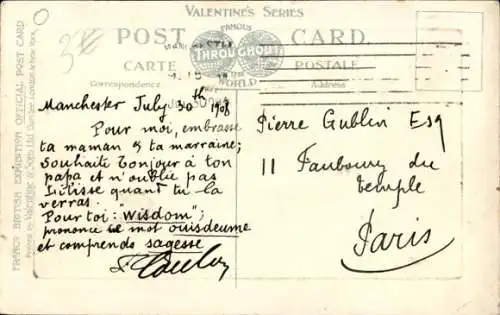 VALENTINE'S SERIES
FAMOUS
POST CARD
THROUGHOUT
THE
WORLD
CARTE POSTALE
Correspondence
Address
FRANCO BRITISH EXHIBITION OFFICIAL POST CARD
Manchester July 30th 1908
Pour moi, embrasse
ta maman & ta marraine;
souhaite bonjour à ton
papa et n'oublie pas
quant tu la
verras.
Pour toi: "wisdom";
prononce ce mot ouisdeume
et comprends sagesse
Pierre Gublin Esq
11 Faubourg du
temple
Paris